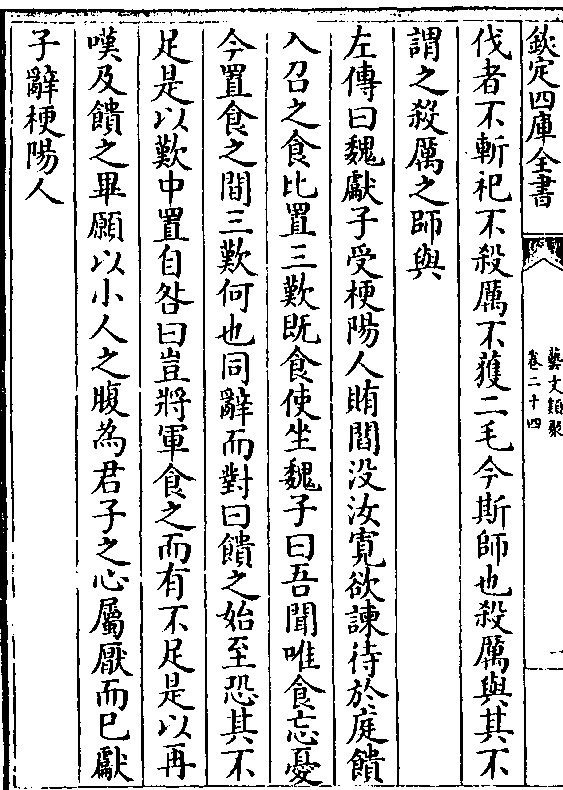 欽定四庫全書
藝文類聚
卷二十四
伐者不斬祀不殺厲不獲二毛今斯師也殺厲與其不
謂之殺厲之師與
左傳曰魏獻子受梗陽人賄閻沒汝寛欲諫待於庭饋
入召之食比置三歎既食使坐魏子曰吾聞唯食忘憂
今置食之間三歎何也同辭而對曰饋之始至恐其不
足是以歎中置自咎曰豈將軍食之而有不足是以再
嘆及饋之畢願以小人之腹為君子之心屬厭而已獻
子辭梗陽人